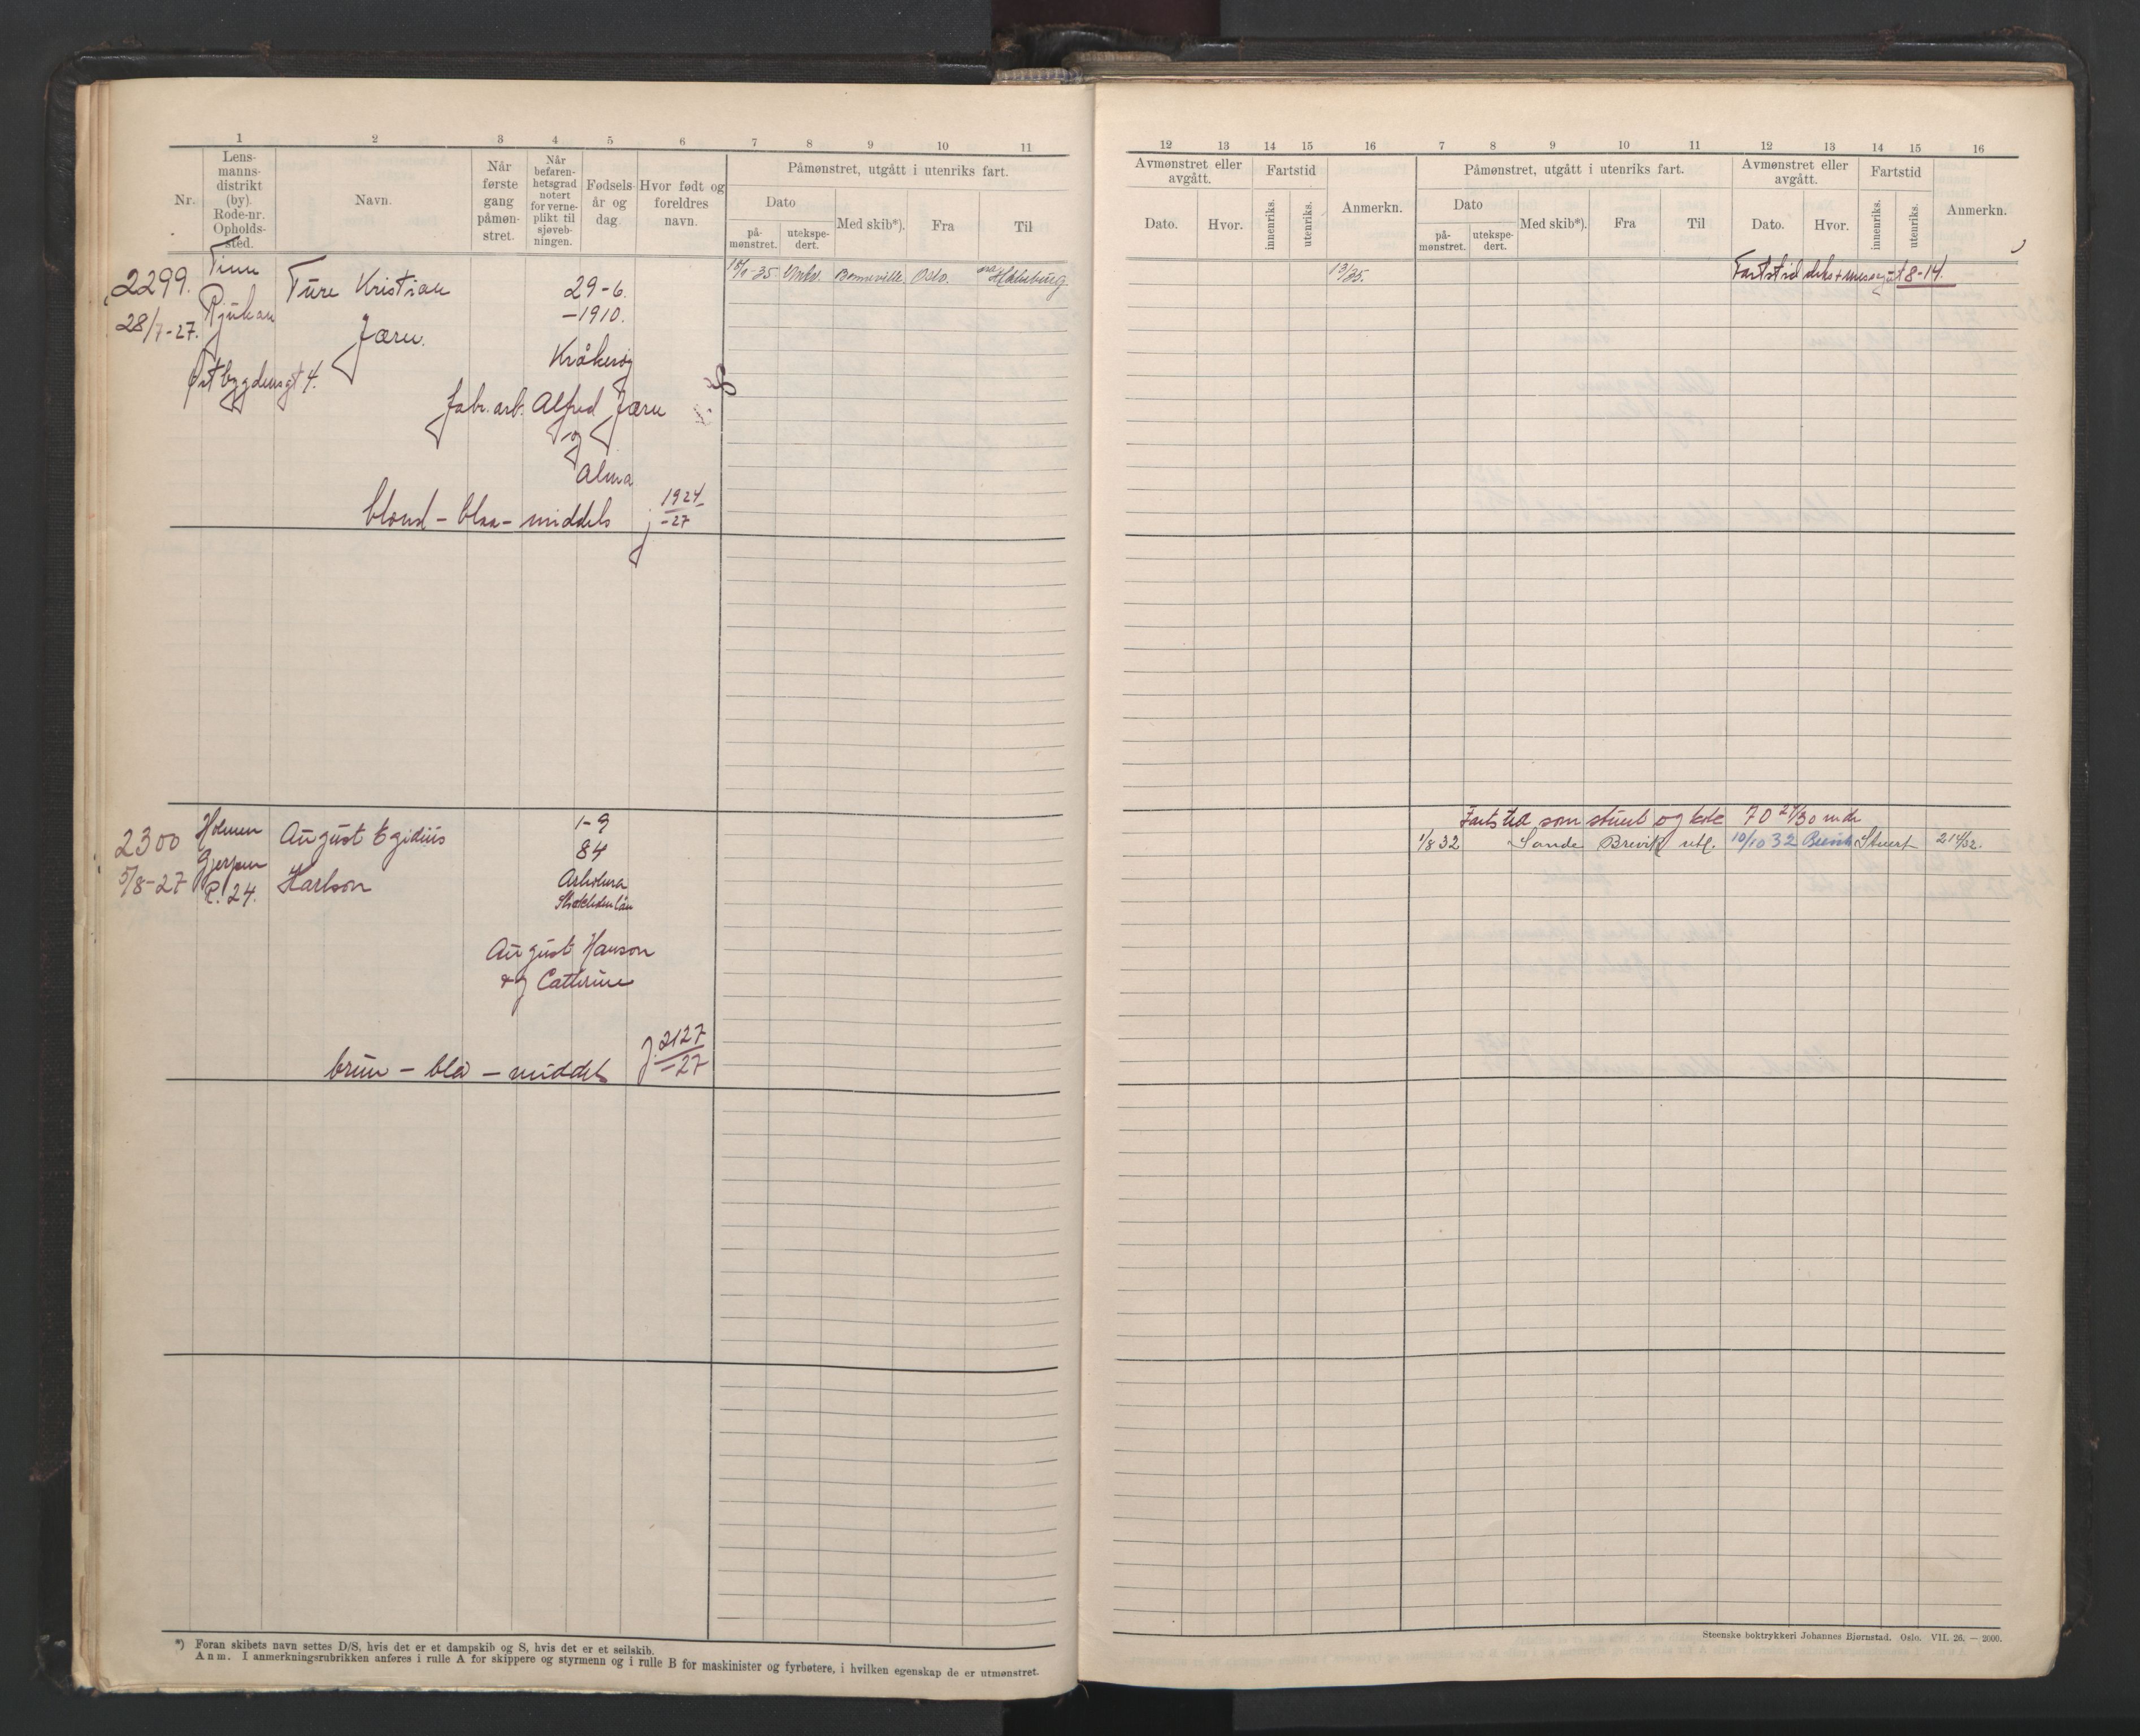 1 2 3 4 5 6 7 8 9 10 11
Nr. Lens-manns-distrikt (by). Rode-nr. Opholds-sted. Navn. Når første gang påmøn-stret. Når befaren-hetsgrad notert for verne-plikt til sjøveb-ningen. Fødsels-år og dag. Hvor født og foreldres navn. Påmønstret, utgått i utenriks fart.
Dato Med skib*). Fra Til
på-mønstret. utekspe-dert.
2299. Tinn Ture Kristian 29-6. Bonneville Oslo.
28/7-27. Rjukan Jæru. -1910.
Kråkerøy
Østbygdensgt 4.
fabr. arb. Alfred Jæru
og
Alma
blond - blaa - middels j 1924/-27
2300 Holmen August Egidius 1-9
5/8-27 Gjerpen Karlson 84
R. 24. Arholma
August Hanson
og Catterine
brun - blå - middels J. 2127/-27
*) Foran skibets navn settes D/S, hvis det er et dampskib og S, hvis det er et seilskib.
Anm. I anmerkningsrubrikken anføres i rulle A for skippere og styrmenn og i rulle B for maskinister og fyrbøtere, i hvilken egenskap de er utmønstret.
12 13 14 15 16 7 8 9 10 11 12 13 14 15 16
Avmønstret eller avgått. Fartstid Anmerkn. Påmønstret, utgått i utenriks fart. Avmønstret eller avgått. Fartstid Anmerkn.
Dato. Hvor. innenriks. utenriks. Dato Med skib*). Fra Til Dato. Hvor. innenriks. utenriks.
på-mønstret. utekspe-dert.
13/35. Fartstid 8-14.
Fartstid som stuert og kok 70 27/30 mdr
1/8 32 Sande Brevik utl. 10/10 32 Stuert
Steenske boktrykkeri Johannes Bjørnstad. Oslo. VII. 26. — 2000.